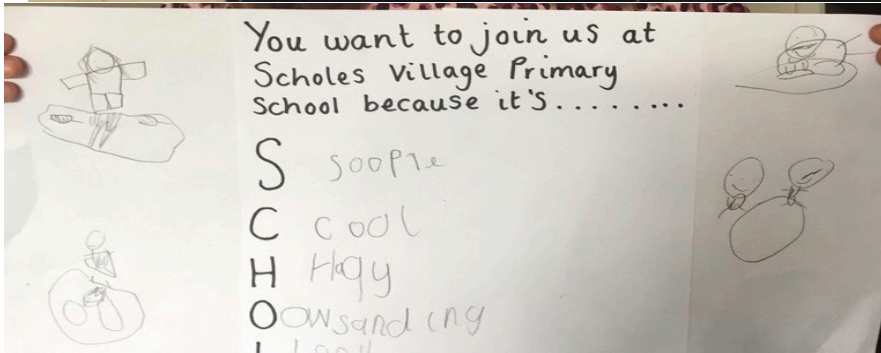 You want to join us at
Scholes Village Primary
School because it's........
S soople
C cool
H Haqy
O owsanding
L